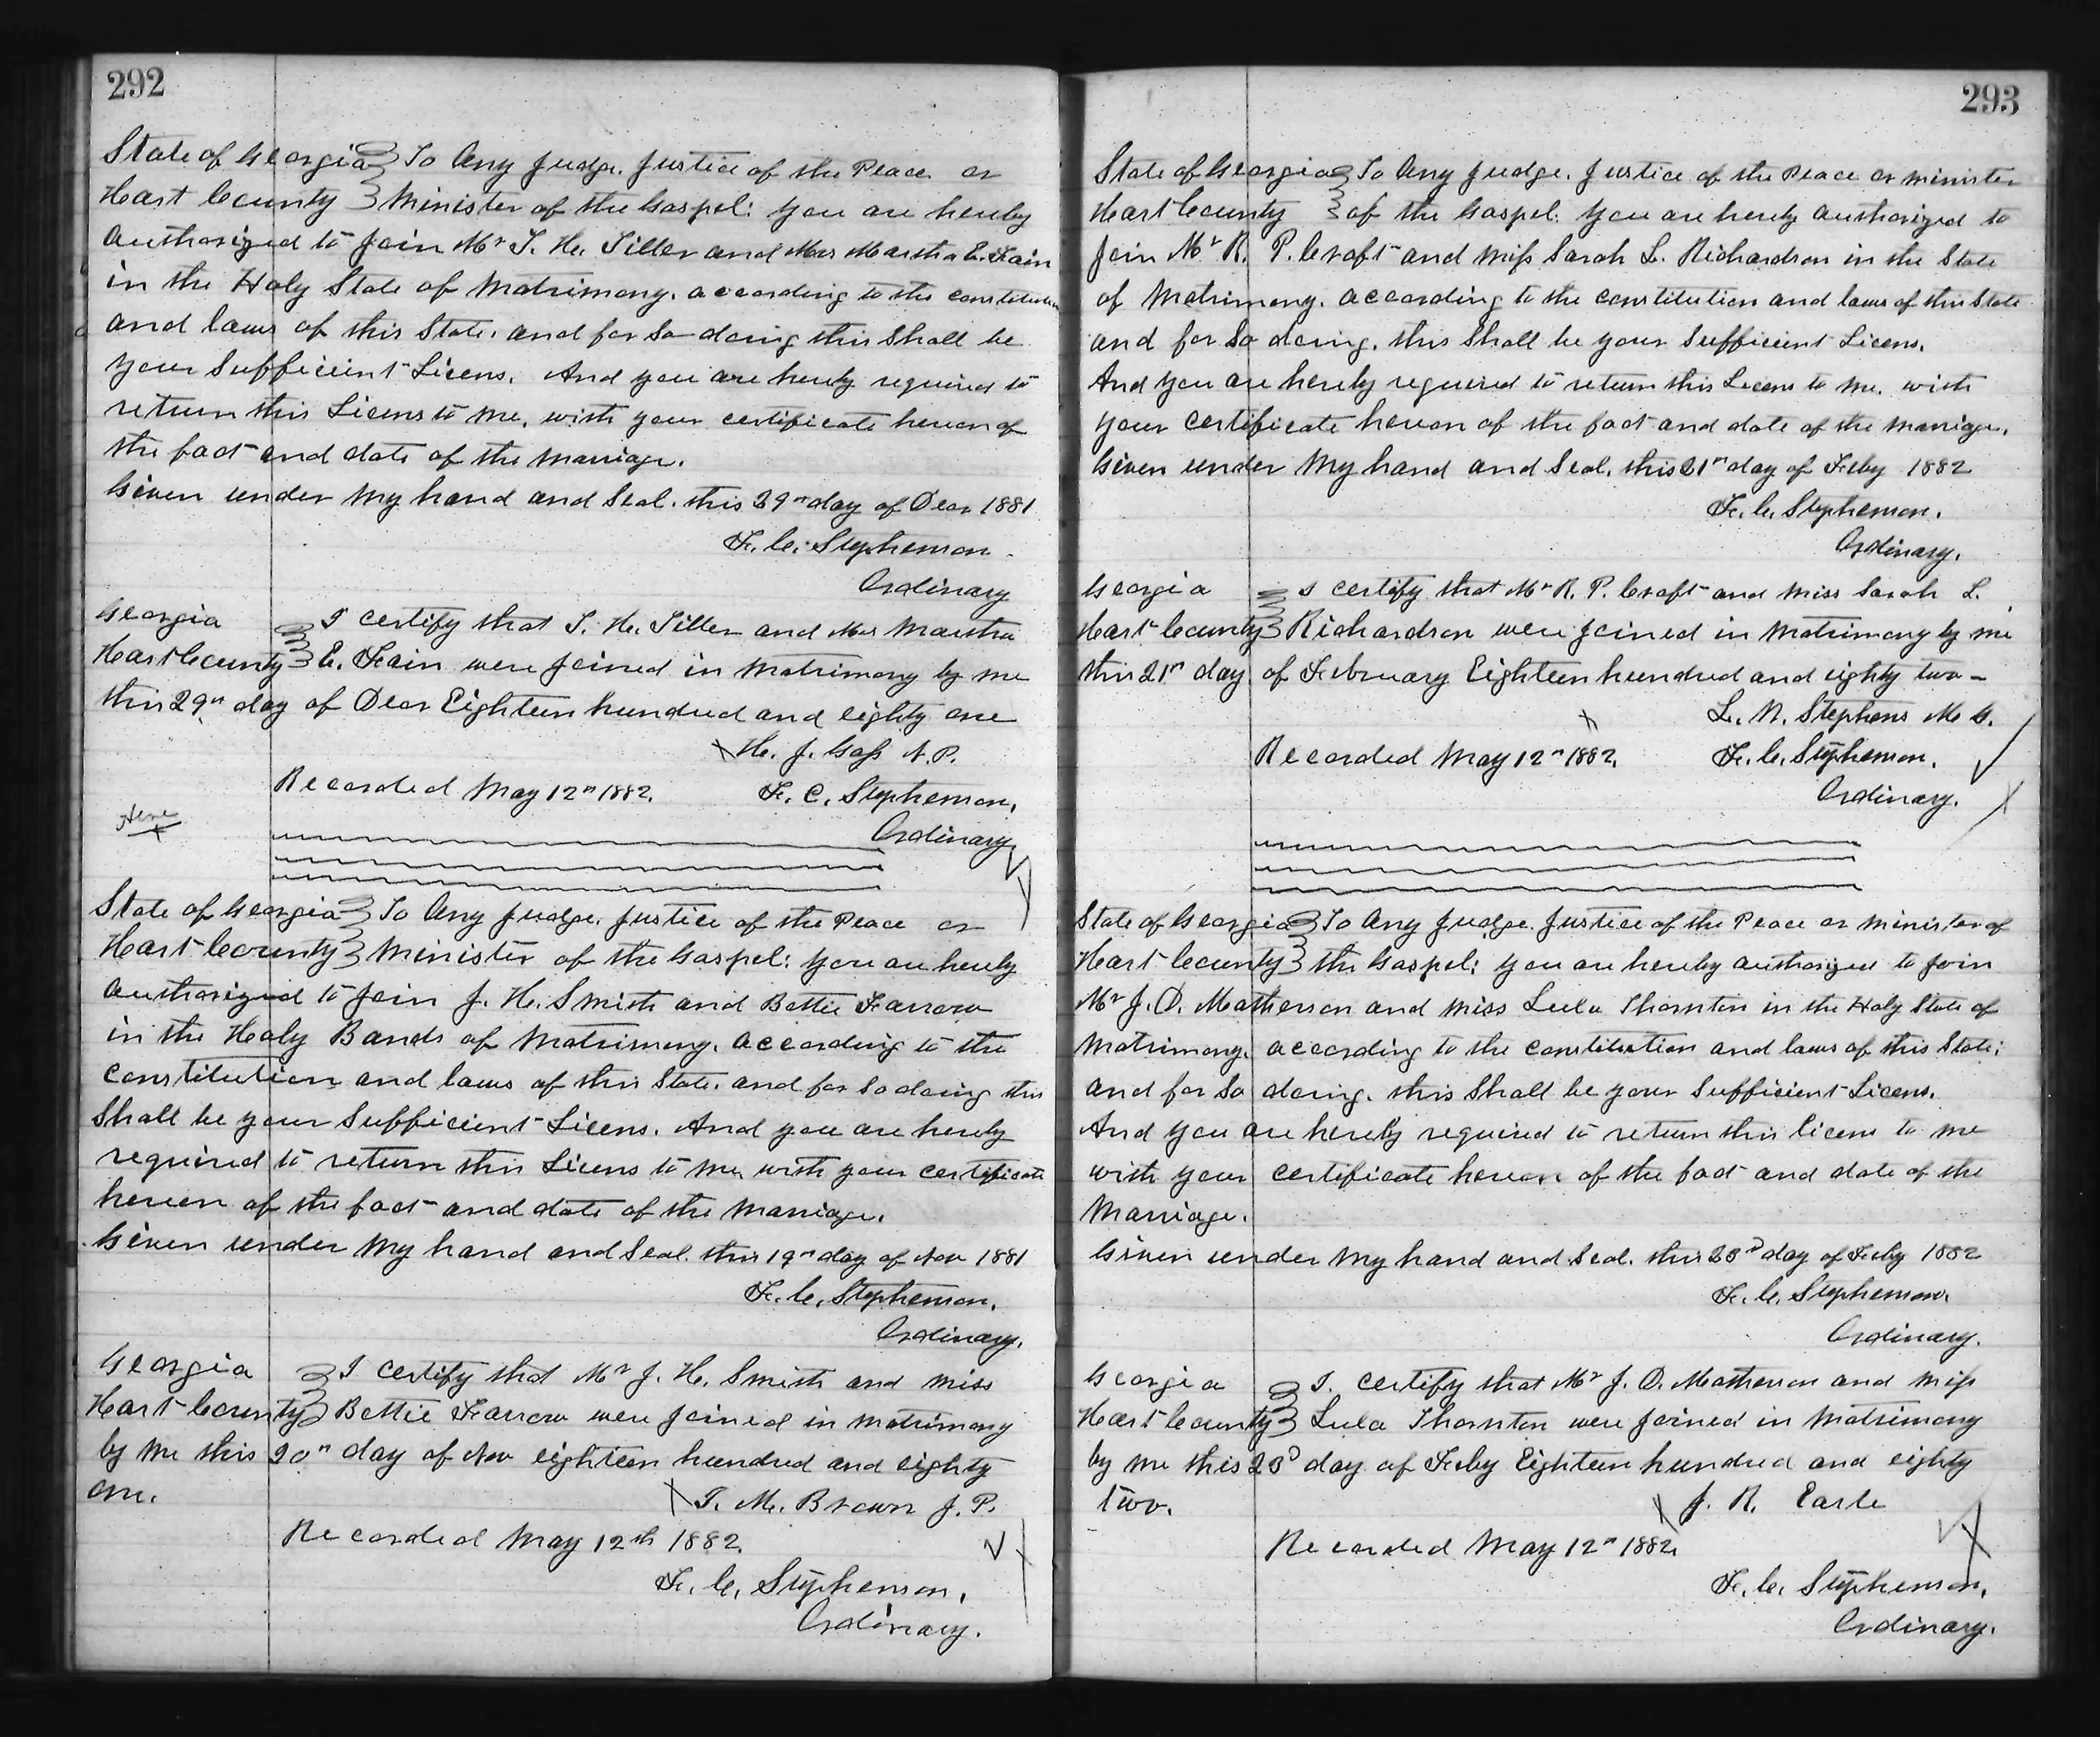 292
State of Georgia To Any Judge. Justice of the Peace or
Hart County Minister of the Gospel: you are hereby
authorized to join Mr T. H. Tiller and Mrs Martha E. Fain
in the Holy State of Matrimony. according to the constitution
and laws of this State. and for so doing this shall be
your sufficient Licens. And you are hereby required to
return this Licens to me, with your certificate hereon of
the fact and date of the marriage.
Given under my hand and Seal. this 29th day of Decr 1881
F. C. Stephenson.
Ordinary
Georgia I certify that T. H. Tiller and Mrs Martha
Hart County E. Fain were joined in matrimony by me
this 29th day of Decr Eighteen hundred and eighty one
H. J. Goss N.P.
Recorded May 12th 1882. F. C. Stephenson,
Ordinary.
Here
State of Georgia To Any Judge. Justice of the Peace or
Hart County Minister of the Gospel: you are hereby
authorized to join J. H. Smith and Bettie Farrow
in the Holy Bands of Matrimony. according to the
constitution and laws of this State. and for so doing this
shall be your sufficient Licens. And you are hereby
required to return this Licens to me with your certificate
hereon of the fact and date of the marriage.
Given under my hand and Seal. this 19th day of Nov 1881
F. C. Stephenson.
Ordinary.
Georgia I certify that Mr J. H. Smith and miss
Hart County Bettie Farrow were joined in matrimony
by me this 20th day of Nov eighteen hundred and eighty
one.
T. M. Brown J. P.
Recorded May 12th 1882.
F. C. Stephenson,
Ordinary.
293
State of Georgia To Any Judge. Justice of the Peace or minister
Hart County of the Gospel. you are hereby authorized to
join Mr R. P. Croft and Miss Sarah L. Richardson in the State
of Matrimony. according to the constitution and laws of this State
and for so doing. this shall be your sufficient Licens.
And you are hereby required to return this Licens to me. with
your certificate hereon of the fact and date of the marriage.
Given under my hand and Seal. this 21st day of Feby 1882
F. C. Stephenson.
Ordinary.
Georgia I certify that Mr R. P. Croft and miss Sarah L.
Hart County Richardson were joined in matrimony by me
this 21st day of February Eighteen hundred and eighty two -
L. N. Stephens M. G.
Recorded May 12th 1882. F. C. Stephenson.
Ordinary.
State of Georgia To Any Judge. Justice of the Peace or minister of
Hart County the Gospel; you are hereby authorized to join
Mr J. D. Matherson and miss Lula Thornton in the Holy State of
Matrimony. according to the constitution and laws of this State;
and for so doing. this shall be your sufficient Licens.
And you are hereby required to return this licens to me
with your certificate hereon of the fact and date of the
Marriage.
Given under my hand and Seal. this 23d day of Feby 1882
F. C. Stephenson.
Ordinary.
Georgia I. certify that Mr J. D. Matherson and miss
Hart County Lula Thornton were joined in matrimony
by me this 23d day of Feby Eighteen hundred and eighty
two.
J. R. Earle
Recorded May 12th 1882.
F. C. Stephenson,
Ordinary.